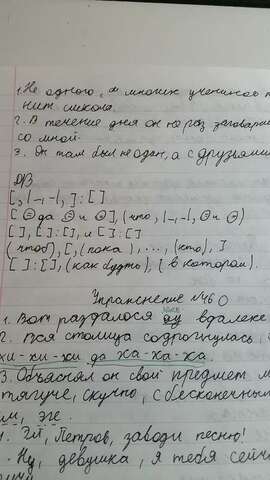 1. Не одного, а многих учеников
нит школа.
2. В течение дня он не раз заговари
со мной.
3. Он там был не один, а с друзьями
ДЗ
[, |-, -|, ] : [ ]
[ ⊖ да ⊖ и ⊖ ], (что, |-, -|, ⊖ и ⊖)
[ ], [ ] : [ ], и [ ] : [ ]
(чтоб), [, (пока), ..., (кто), ]
[ ] : [ ], (как будто), [ в котором).
Упражнение №460
1. Вот раздалося ау вдалеке
2. Вся столица содрогнулась,
хи-хи-хи да ха-ха-ха.
3. Объяснял он свой предмет
тягуче, скучно, с бесконечным
эге.
Эй, Петров, заводи песню!
Ну, девушка, я тебя сейч